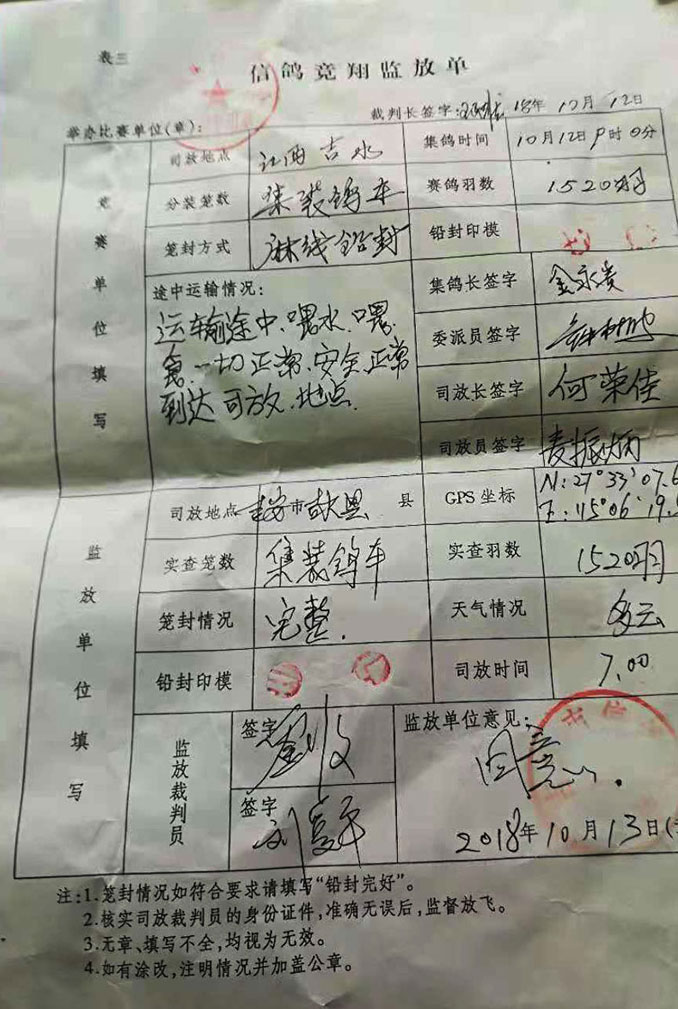 表三
信鸽竞翔监放单
举办比赛单位(章):
裁判长签字: 18年10月12日
竞赛单位填写
司放地点 江西吉水 集鸽时间 10月12日9时0分
分装笼数 集装鸽车 赛鸽羽数 1520羽
笼封方式 麻线铅封 铅封印模
途中运输情况:
运输途中、喂水、喂
食、一切正常、安全正常
到达司放、地点
集鸽长签字 金永贵
委派员签字
司放长签字 何荣佳
司放员签字 麦振炳
监放单位填写
司放地点 吉安市吉水县 县 GPS坐标 N:27°33'07.6
E:115°06'19.
实查笼数 集装鸽车 实查羽数 1520羽
笼封情况 完整. 天气情况 多云
铅封印模 司放时间 7.00
监放裁判员
签字
签字
监放单位意见:
同意
2018年10月13日(
注:1.笼封情况如符合要求请填写“铅封完好”。
2.核实司放裁判员的身份证件,准确无误后,监督放飞。
3.无章、填写不全,均视为无效。
4.如有涂改,注明情况并加盖公章。